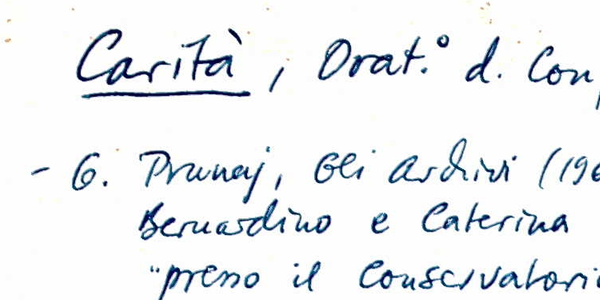 Carità, Orat.º d. Con
- G. Prunaj, Gli Archivi (196
Bernardino e Caterina
"presso il Conservatori